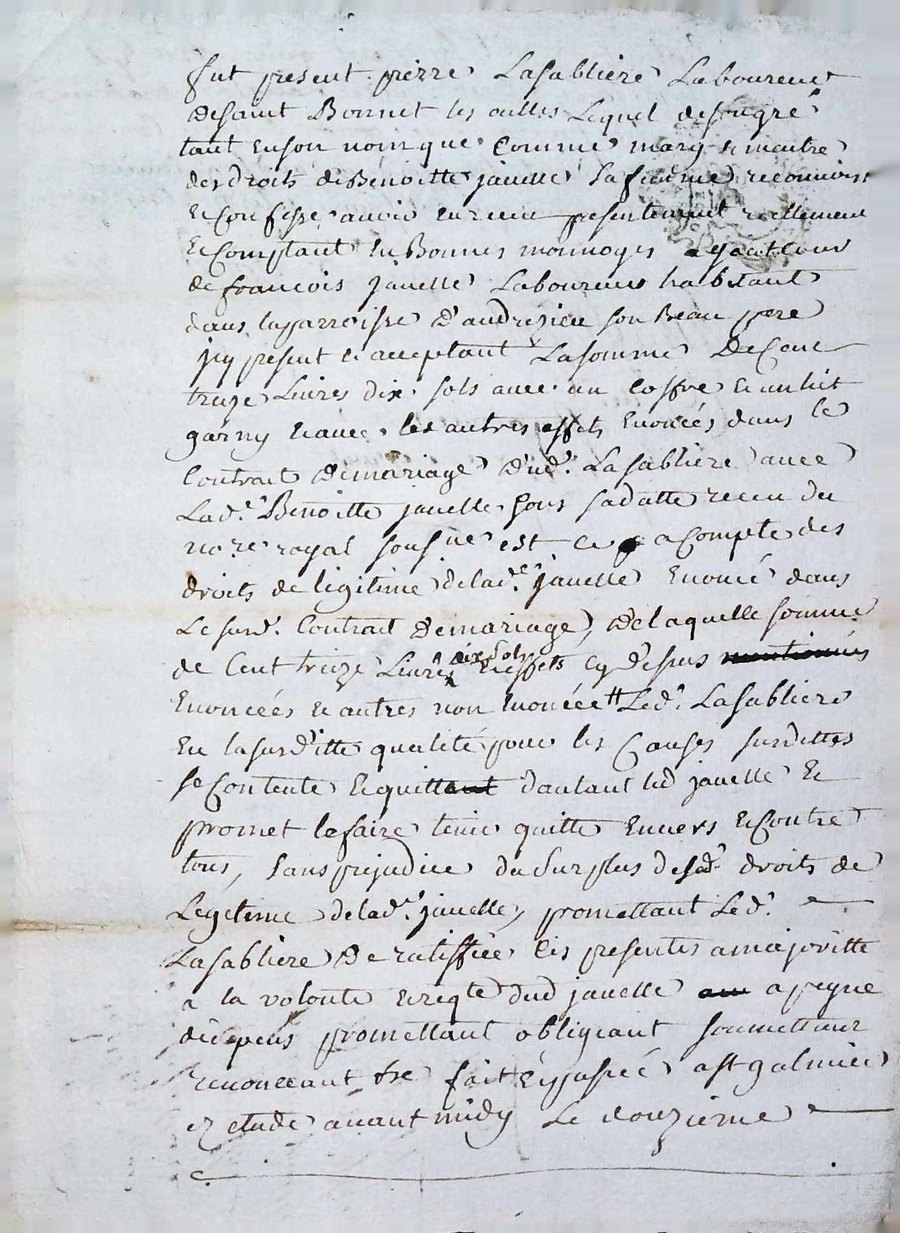 fut present pierre Lasabliere Laboureur
desaint Bonnet les oulles Lequel desongre
tant enson nom que Comme mary & maitre
des droits deBenoitte jauelle sa femme reconnoist
etConfesse auoir eu receu presentement reellement
etComptant en Bonnes monnoyes ayant cour
de francois jauelle Laboureur habitant
dans laparroisse d'andrezieu son Beau pere
jcy present et acceptant Lasomme DeCent
treize Liures dix sols auec un Coffre et un lit
garny et auec les autres effets Enoncés dans le
Contrait Demariage dud. Lasabliere auec
Lad.e Benoitte jauelle sous sadatte receu du
no.re royal sousne est ce acompte des
droits de legitime delad.e jauelle Enoncé dans
Lesusd. Contrait Demariage, delaquelle somme
de Cent treize Liures dix sols et effets cy dessus mentionnés
Enoncées et autres non enoncée Led. Lasabliere
En lasusd'itte qualité pour les Causes susdittes
se Contente et quittant dautant led jauelle et
promet le faire tenir quitte Enuers et Contre
tous, sans prejudice du Surplus desd. droits de
Legitime delad.e jauelle, promettant Led.
Lasabliere De ratiffier les presentes amajoritte
a la volonté et reqte dud jauelle a peyne
de depens promettant obligeant soumettant
renonceant &c fait et passé a st galmier
ez etude auant midy Le douzieme